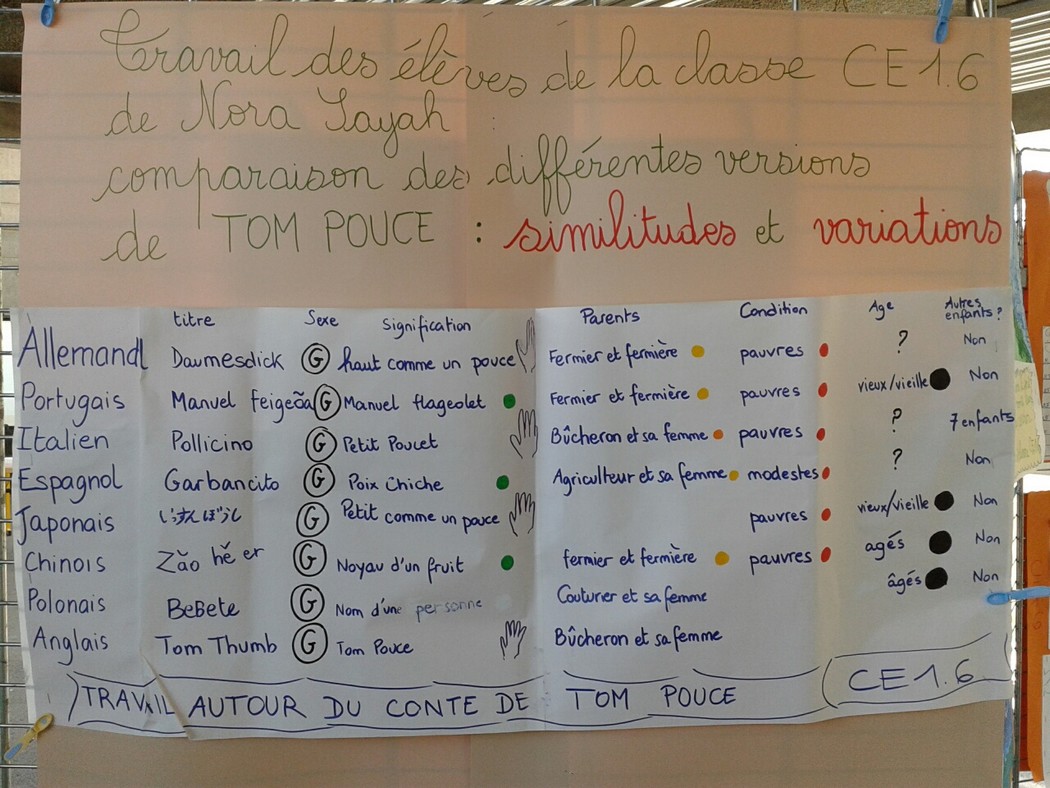 Travail des élèves de la classe CE1.6
de Nora Sayah
comparaison des différentes versions
de TOM POUCE : similitudes et variations
titre Sexe Signification Parents Condition Age Autres enfants ?
Allemand Daumesdick G haut comme un pouce Fermier et fermière pauvres ? Non
Portugais Manuel Feigeõa G Manuel flageolet Fermier et fermière pauvres vieux/vieille Non
Italien Pollicino G Petit Poucet Bûcheron et sa femme pauvres ? 7 enfants
Espagnol Garbancito G Poix Chiche Agriculteur et sa femme modestes ? Non
Japonais いっすんぼうし G Petit comme un pouce pauvres vieux/vieille Non
Chinois Zăo hĕ er G Noyau d'un fruit fermier et fermière pauvres agés Non
Polonais BeBete G Nom d'une personne Couturier et sa femme âgés Non
Anglais Tom Thumb G Tom Pouce Bûcheron et sa femme
TRAVAIL AUTOUR DU CONTE DE TOM POUCE CE1.6